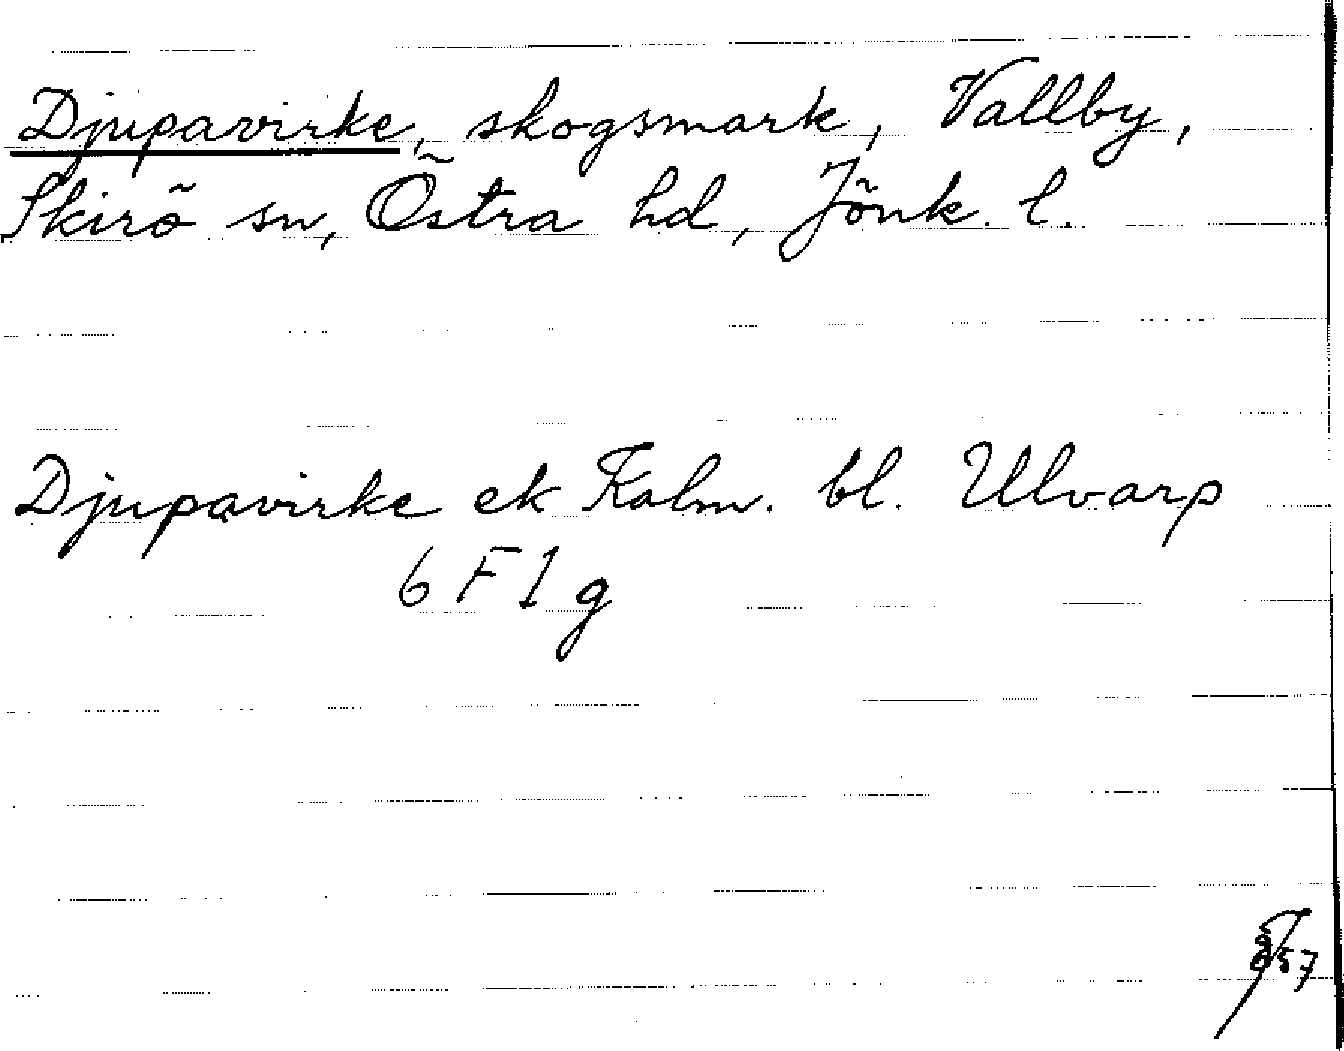 Djupavirke, skogsmark, Vallby,
Skirö sn, Östra hd, Jönk. l.
Djupavirke ek Kalm. bl. Ulvarp
6 F 1 g
57